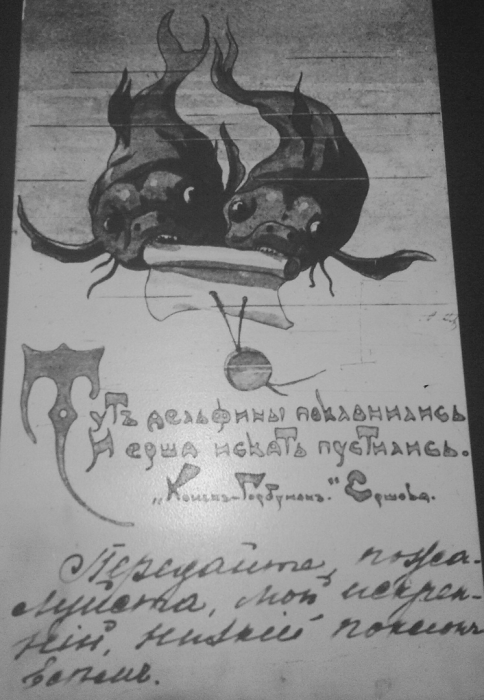 Тутъ дельфины поклонились
И ерша искать пустились.
„Конекъ-Горбунокъ." Ершова.
Передайте, пожа-
луйста, мой искрен-
ній, низкій поклонъ